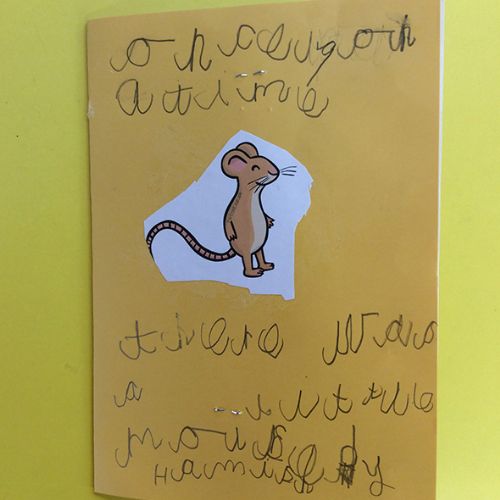 once upon
a time
there was
a little
mouse by
Hamish